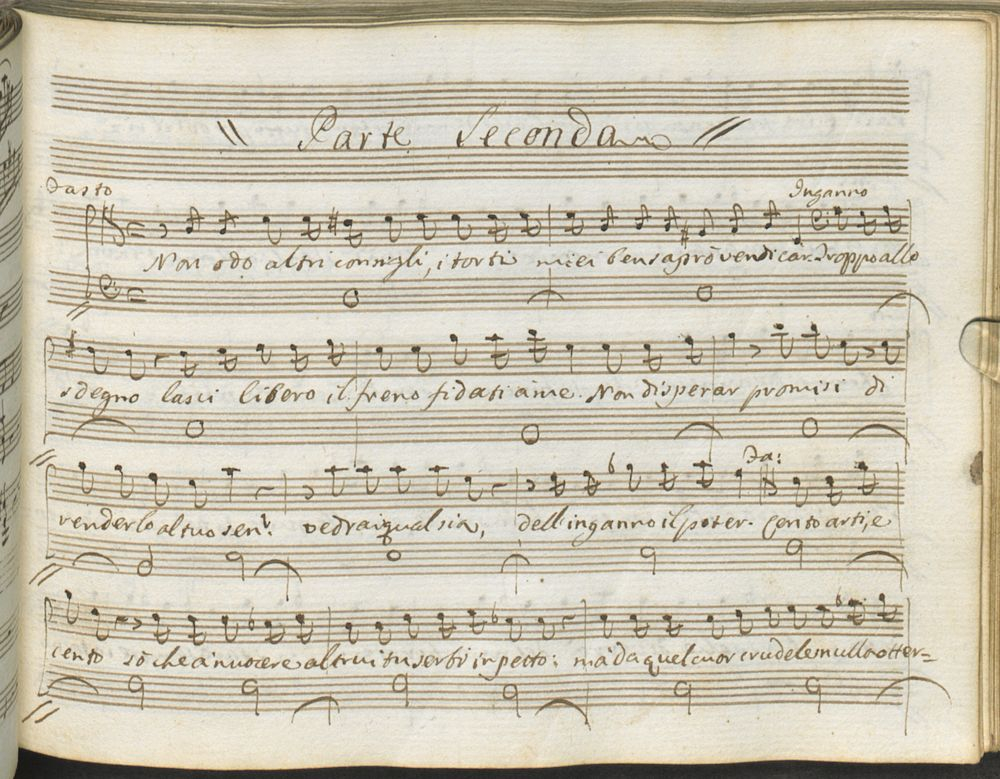 Parte Seconda
Fasto Inganno
Non odo altri consigli, i torti miei ben saprò vendicàr. Troppo allo
sdegno lasci libero il freno fidati à me. Non disperar promisi di
Fa:
renderlo al tuo sen? vedrai qual sia, dell'inganno il poter. Cento arti, e
cento sò che à nuocere altrui tu serbi in petto; mà da quel cuor crudele nulla otter=